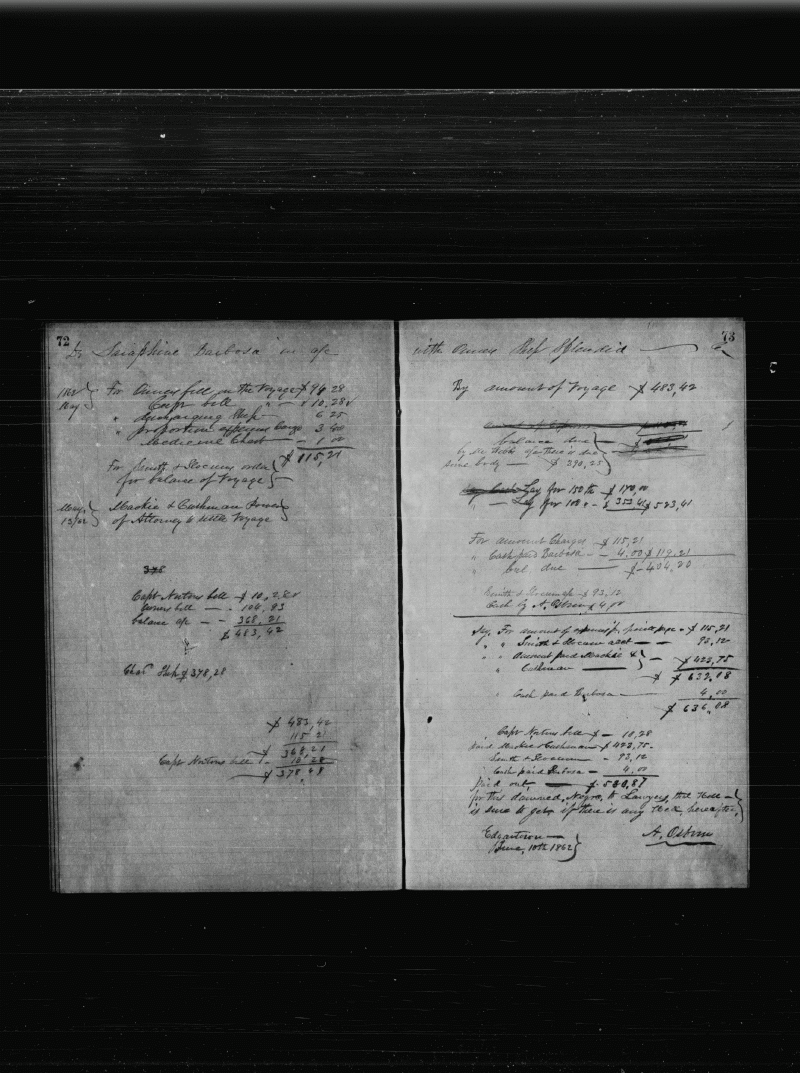 72
Dr Seraphine Barbosa in a/c
1862
May
For Owners bill on the Voyage $ 94 28
" Capt bill " — " 10,28
" discharging Ship — 6 25
" proportion 3 40
" Medicine Chest — 1 00
$ 115,21
For Smith & Slocums order
for balance of Voyage
May,
13/62
Mackie & Cushman Power
of Attorney to settle Voyage
Capt Nortons bill — $ 10,28
Owners bill — — 104,93
balance a/c — — 368,21
$ 483,42
Ship $ 378,28
$ 483,42
115 21
368,21
Capt Nortons bill — 10 28
$ 378,48
73
with Owners Ship Splendid — Cr
By amount of Voyage $ 483,42
balance due
some body — $ 390,25
Lay for 150th $ 170,00
" — Lay for 100 " — $ 353,41 $ 523,41
For amount Charges $ 115,21
" Cash paid Barbosa — 4,00 $ 119,21
" bal due — $ 404,20
Smith & Slocum — $ 93,12
Cash by A. Osborn $ 4,00
For amount of $ 115,21
" " Smith & Slocum acct — — 93,12
" " Amount paid Mackie &
" Cushman — $ 423,75
$ 632,08
" Cash paid Barbosa — 4,00
$ 636,08
Capt Nortons bill $ — 10,28
paid Mackie & Cushman $ 423,75
Smith & Slocum — 93,12
Cash paid Barbosa — 4,00
paid out — $
for this damned Negro, to Lawyers, that Hell
is sure to get, if there is any Hell, hereafter,
Edgartown —
June, 10th 1862
A. Osborn